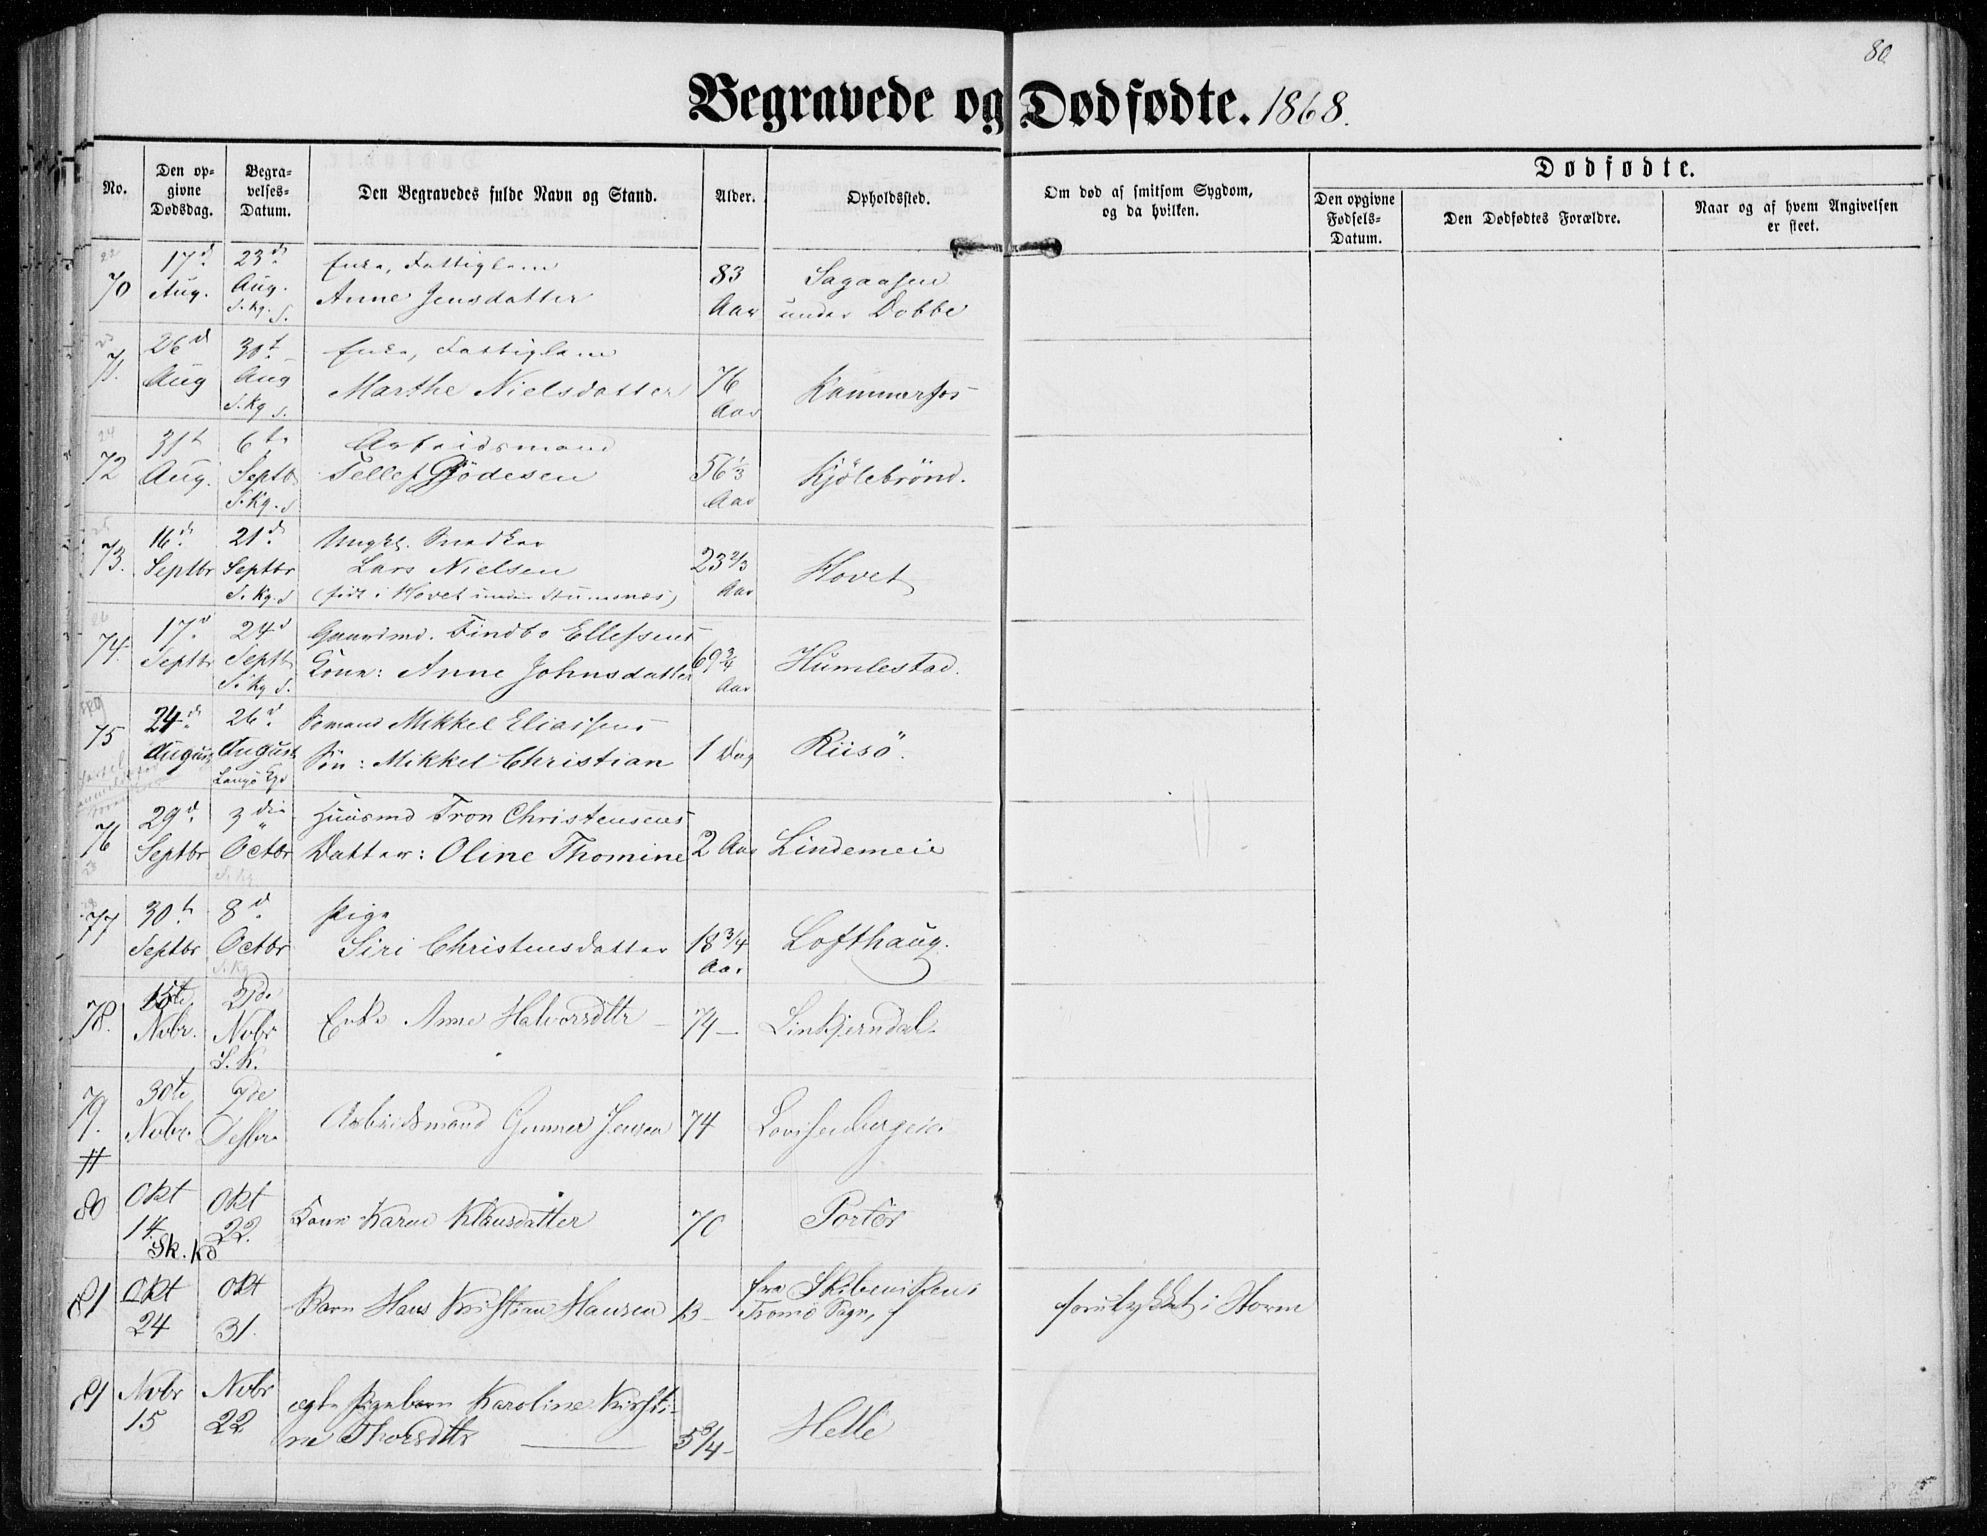 80
Begravede og Dødfødte. 1868.
No.
Den op-
givne
Dødsdag.
Begra-
velses-
Datum.
Den Begravedes fulde Navn og Stand.
Alder.
Opholdssted.
Om død af smitsom Sygdom,
og da hvilken.
Dødfødte.
Den opgivne
Fødsels-
Datum.
Den Dødfødtes Forældre.
Naar og af hvem Angivelsen
er skeet.
22
70 17d Aug. 23d Aug. S.Kg. S.
Enke, Fattiglem
Anne Jensdatter
83 Aar
Sagaasen
under Dobbe
23
71. 26d Aug 30t Aug S.Kg S.
Enke, Fattiglem
Marthe Nielsdatter
76 Aar
Kammerfos
24
72 31t Aug. 6te Septbr S.Kg. S
Arbeidsmand
Tellef Gjödesen
56 1/3 Aar
Kjölebrönd.
25
73. 16d Septbr 21d Septbr S.Kg. S
Ungkl. Snedker
Lars Nielsen
(født i Hovet under Stumsnæs)
23 2/3 Aar
Hovet
26
74. 17d Septbr 24d Septb S.Kg S.
Gaardmd. Findbo Ellefsens
Kone: Anne Johnsdatter
69 3/4 Aar
Humlestad.
75 24d August 26d August Langö
Sömand Mikkel Eliassens
Sön: Mikkel Christian
1 Dag
Riisö.
76 29d Septbr 3die Octbr S.Kg
Huusmd Tron Christensens
Datter: Oline Thomine
2 Aar
Lindemeie
77 30t Septbr 8d Octbr S.Kg
Pige
Siri Christensdatter
18 3/4 Aar
Lofthaug.
78. 15te Nvbr. 21de Nvbr S.K.
Enke Anne Halvorsdttr
74 —
Linkjerndal
79. 30te Nvbr. 7de Desbr.
Arbeidsmand Gunner Jensen
74
Lovisenbergeie
80 Okt 14. Okt 22. Sk. Kg
Kone Karen Klausdatter
70
Portör
81 Okt 24 Okt 31.
Barn Hans Kristian Hansen
13 —
fra Skibeniken i
Tromö Sogn,
forulykket i Storm
81 Nvbr 15 Nvbr 22
ægte Pigebarn Karoline Kirsti-
ne Thorsdttr
5 3/4 —
Helle